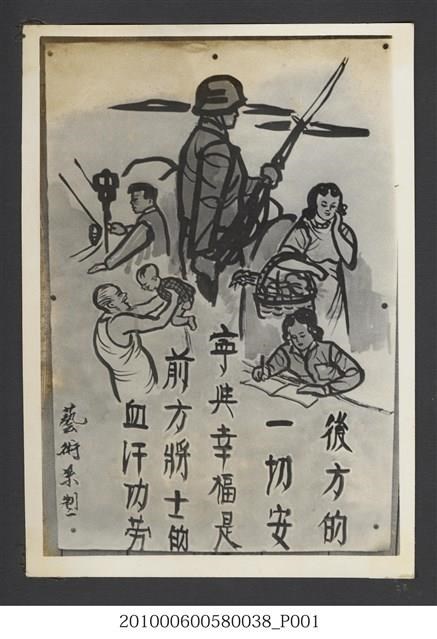 後方的
一切安
寧與幸福是
前方將士的
血汗功劳
藝術系製
201000600580038_P001